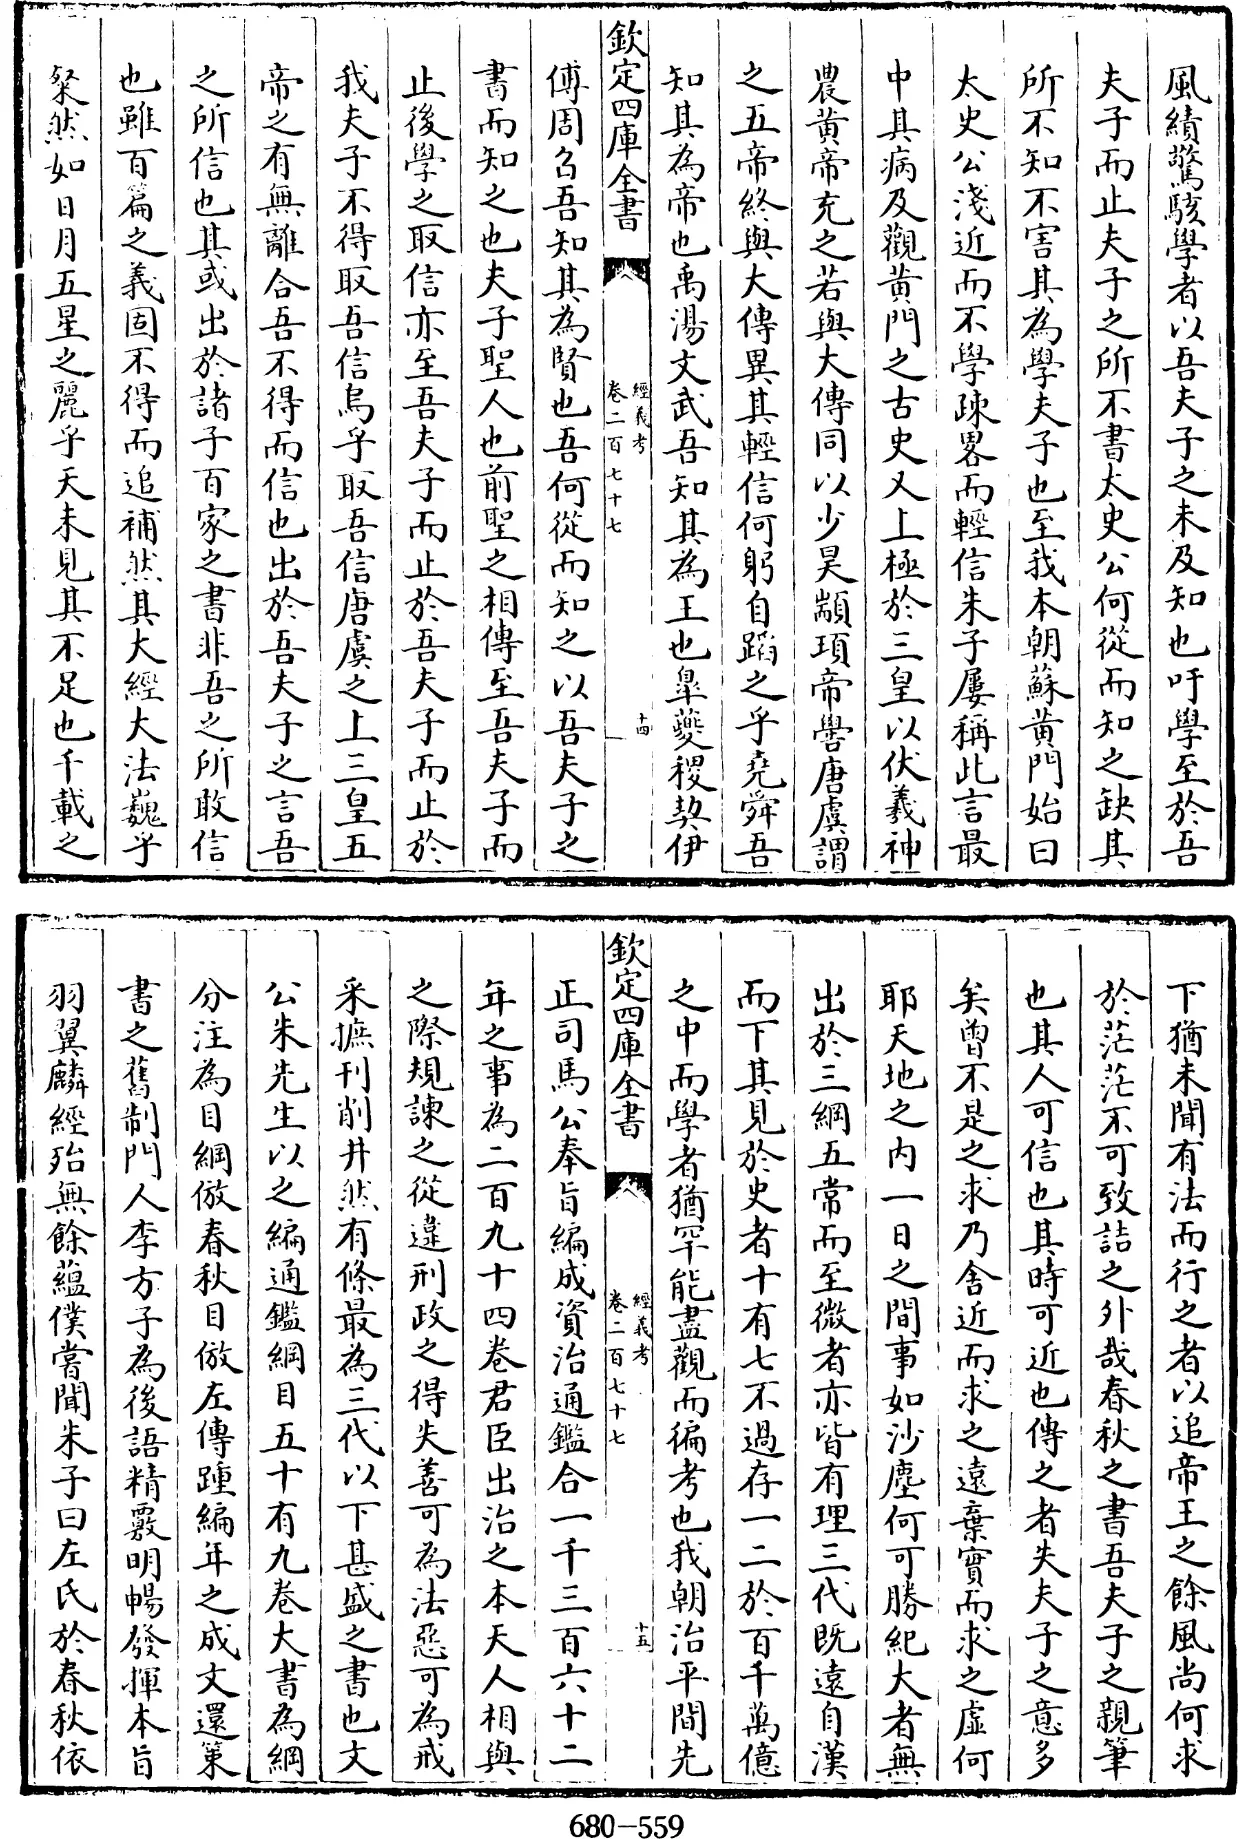 風績驚駭學者以吾夫子之未及知也吁學至於吾
夫子而止夫子之所不書太史公何從而知之缺其
所不知不害其為學夫子也至我本朝蘇黄門始曰
太史公淺近而不學疎畧而輕信朱子屢稱此言最
中其病及觀黄門之古史又上極於三皇以伏羲神
農黄帝充之若與大傳同以少昊顓頊帝嚳唐虞謂
之五帝終與大傳異其輕信何躬自蹈之乎堯舜吾
知其為帝也禹湯文武吾知其為王也臯夔稷契伊
欽定四庫全書
經義考
卷二百七十七
十四
傅周召吾知其為賢也吾何從而知之以吾夫子之
書而知之也夫子聖人也前聖之相傳至吾夫子而
止後學之取信亦至吾夫子而止於吾夫子而止於
我夫子不得取吾信烏乎取吾信唐虞之上三皇五
帝之有無離合吾不得而信也出於吾夫子之言吾
之所信也其或出於諸子百家之書非吾之所敢信
也雖百篇之義固不得而追補然其大經大法巍乎
粲然如日月五星之麗乎天未見其不足也千載之
下猶未聞有法而行之者以追帝王之餘風尚何求
於茫茫不可致詰之外哉春秋之書吾夫子之親筆
也其人可信也其時可近也傳之者失夫子之意多
矣曾不是之求乃舍近而求之遠棄實而求之虛何
耶天地之内一日之間事如沙塵何可勝紀大者無
出於三綱五常而至微者亦皆有理三代既遠自漢
而下其見於史者十有七不過存一二於百千萬億
之中而學者猶罕能盡觀而徧考也我朝治平間先
欽定四庫全書
經義考
卷二百七十七
十五
正司馬公奉旨編成資治通鑑合一千三百六十二
年之事為二百九十四卷君臣出治之本天人相與
之際規諫之從違刑政之得失善可為法惡可為戒
采摭刊削井然有條最為三代以下甚盛之書也文
公朱先生以之編通鑑綱目五十有九卷大書為綱
分注為目綱倣春秋目倣左傳踵編年之成文還策
書之舊制門人李方子為後語精覈明暢發揮本旨
羽翼麟經殆無餘蘊僕嘗聞朱子曰左氏於春秋依
680-559